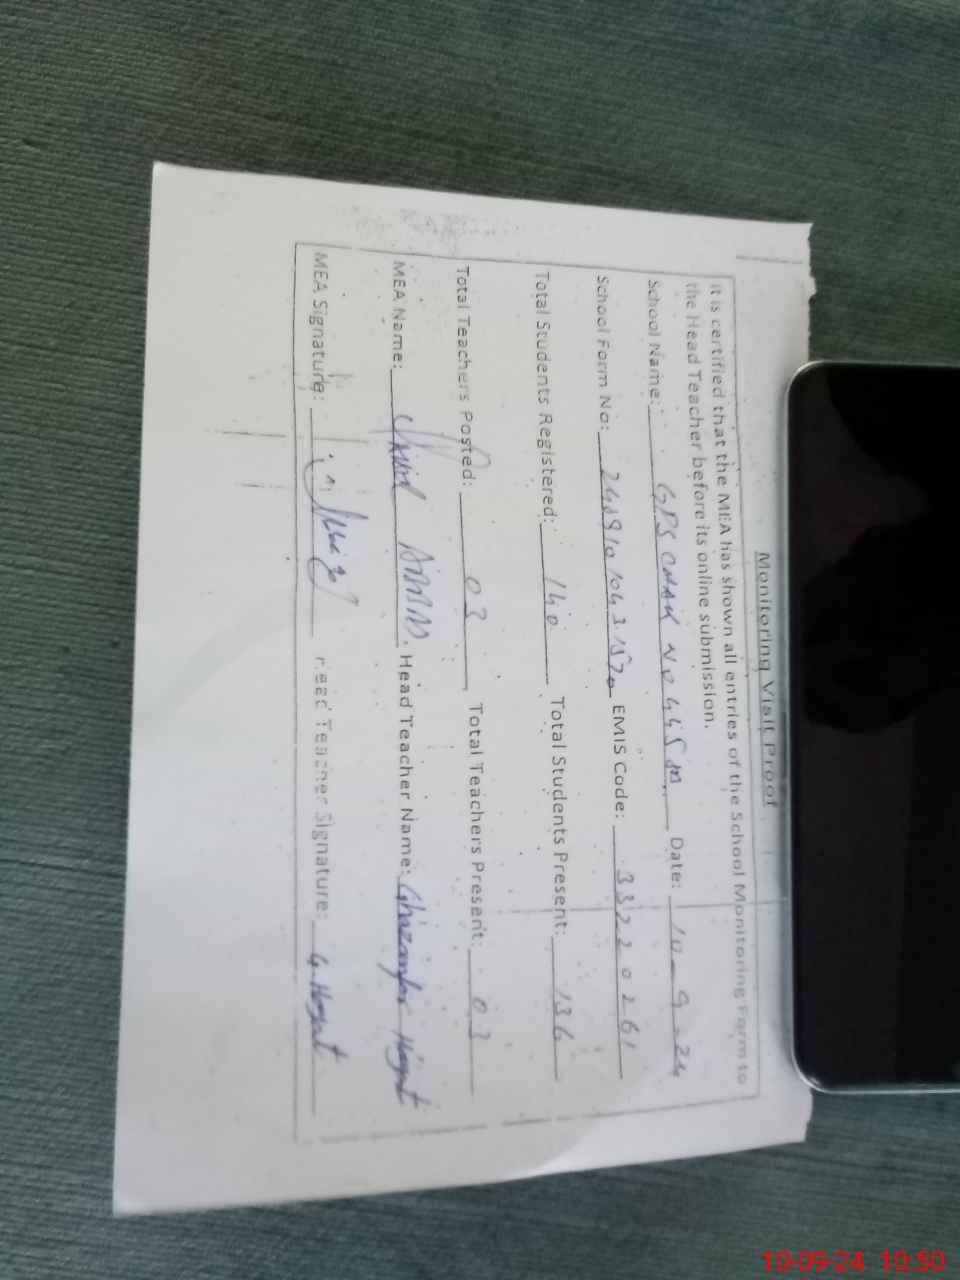 Monitoring Visit Proof
it is certified that the MEA has shown all entries of the School Monitoring Form to
the Head Teacher before its online submission.
School Name: GPS CHAK No 445 m Date: 10-9-24
School Form No: EMIS Code: 33220261
Total Students Registered: 140 Total Students Present: 136
Total Teachers Posted: 03 Total Teachers Present: 03
MEA Name: Head Teacher Name: Ghazanfar Hayat
MEA Signature: Head Teacher Signature: G. Hayat
10-09-24 10:50